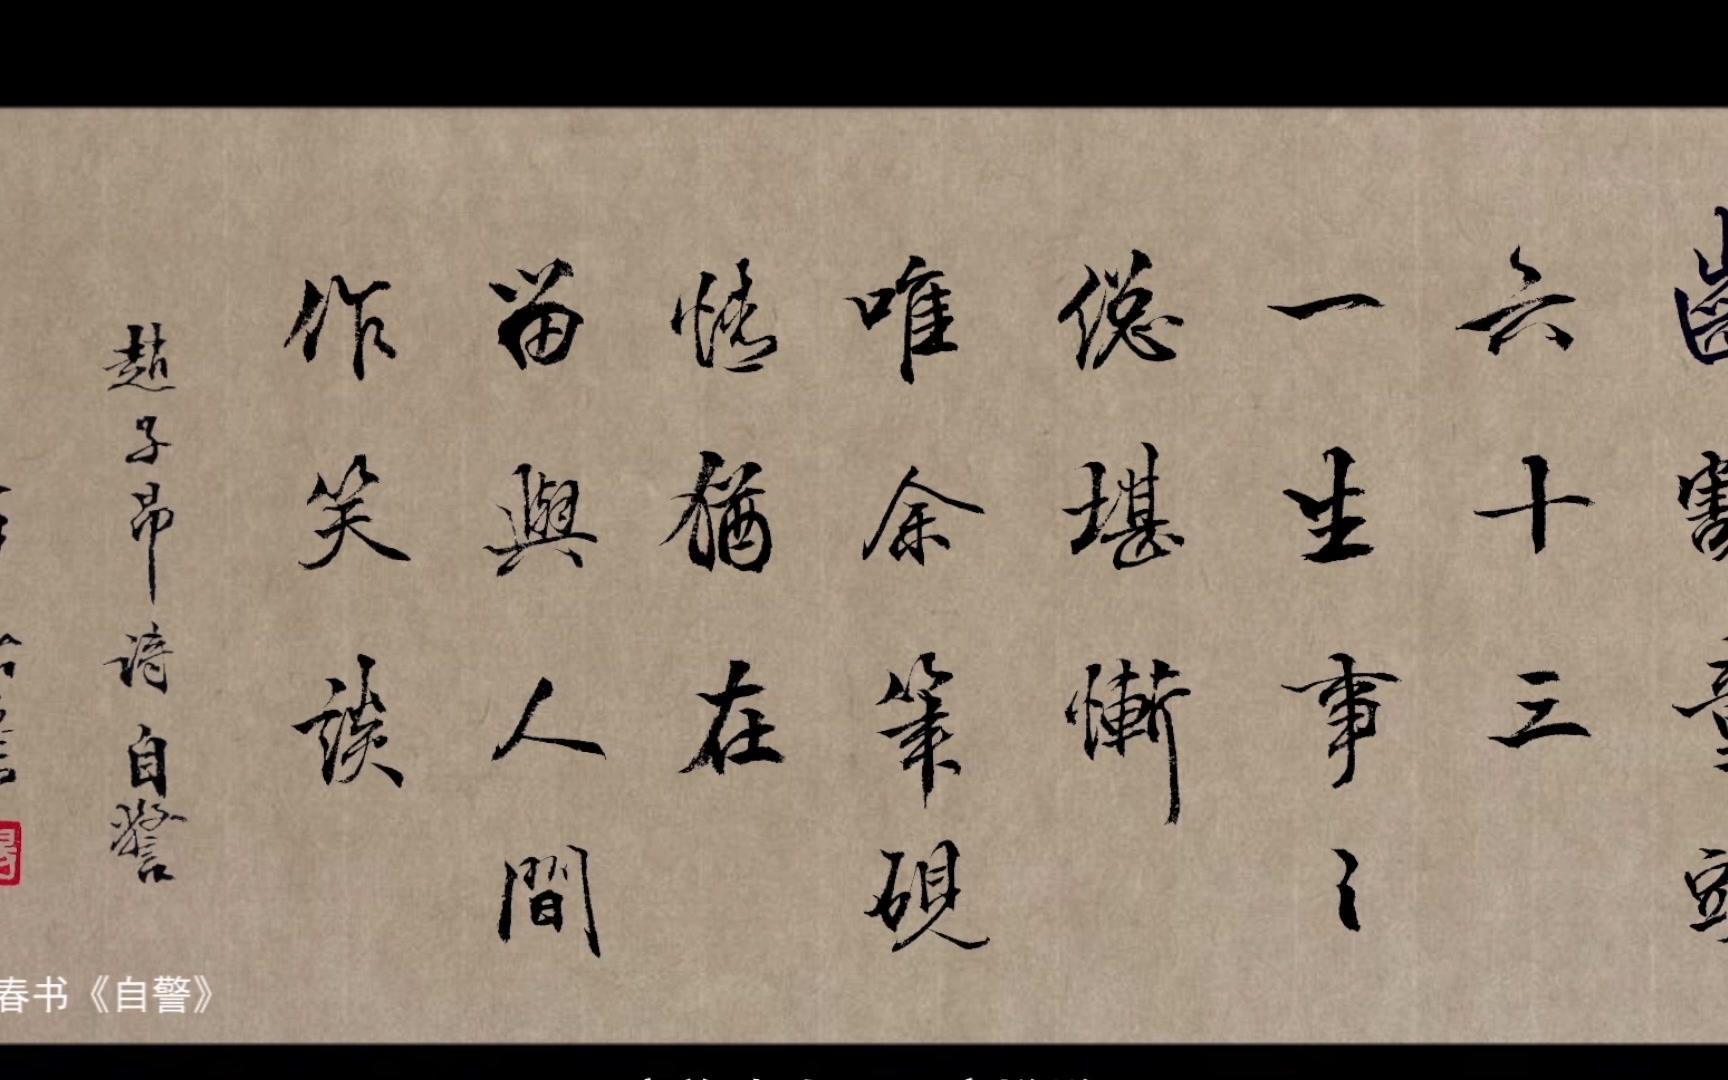 齒豁童頭
六十三
一生事〻
偬堪慚
唯余筆硯
情猶在
留與人間
作笑談
趙子昂詩自警
春书《自警》